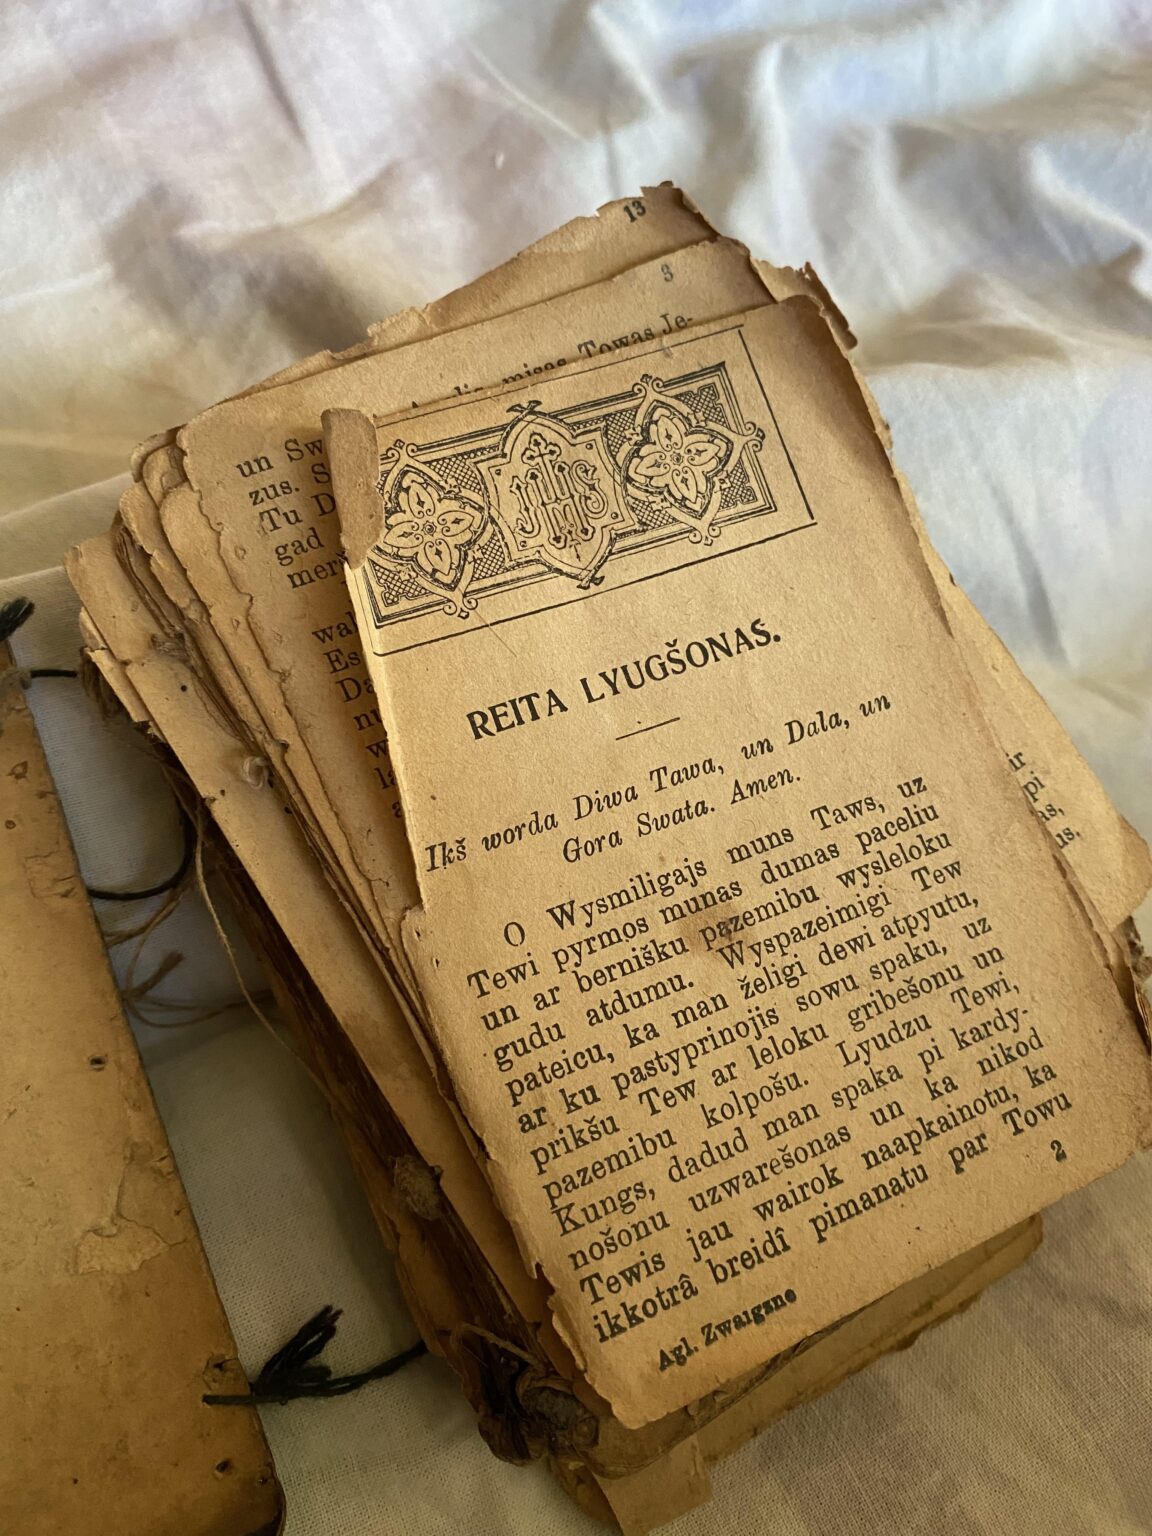 13
3
misas Towas Je-
un Sw
zus. S
Tu D
gad
mer
wal
Es
Da
nu
w
la
a
IHS
REITA LYUGŠONAS.
Ikš worda Diwa Tawa, un Dala, un
Gora Swata. Amen.
O Wysmiligajs muns Taws, uz
Tewi pyrmos munas dumas paceliu
un ar bernišku pazemibu wysleloku
gudu atdumu. Wyspazeimigi Tew
pateicu, ka man želigi dewi atpyutu,
ar ku pastyprinojis sowu spaku, uz
prikšu Tew ar leloku gribešonu un
pazemibu kolpošu. Lyudzu Tewi,
Kungs, dadud man spaka pi kardy-
nošonu uzwarešonas un ka nikod
Tewis jau wairok naapkainotu, ka
ikkotrâ breidî pimanatu par Towu
Agl. Zwaigzne
2
ir
pi
as,
us.